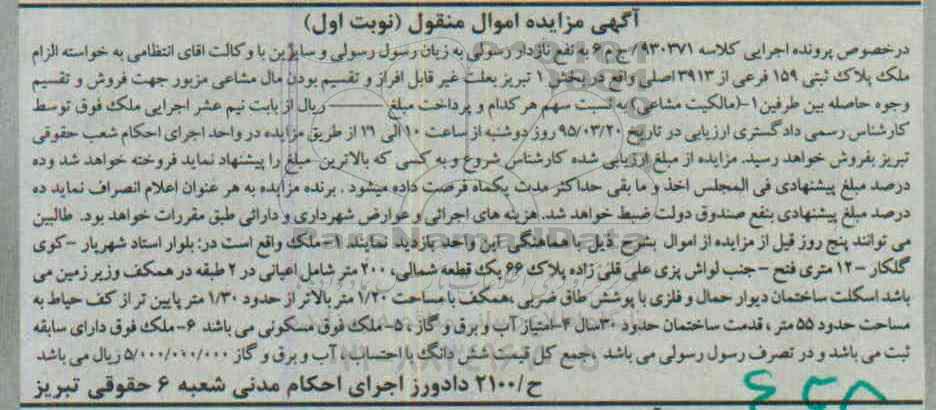 آگهی مزایده اموال منقول (نوبت اول)
درخصوص پرونده اجرایی کلاسه ۹۳۰۳۷۱/ج ۶ به نفع نازدار رسولی به زیان رسول رسولی و سایرین با وکالت اقای انتظامی به خواسته الزام
ملک پلاک ثبتی ۱۵۹ فرعی از ۳۹۱۳ اصلی واقع در بخش ۱ تبریز بعلت غیر قابل افراز و تقسیم بودن مال مشاعی مزبور جهت فروش و تقسیم
وجوه حاصله بین طرفین ۱-(مالکیت مشاعی) به نسبت سهم هر کدام و پرداخت مبلغ ——— ریال از بابت نیم عشر اجرایی ملک فوق توسط
کارشناس رسمی دادگستری ارزیابی در تاریخ ۹۵/۰۳/۲۰ روز دوشنبه از ساعت ۱۰ الی ۱۱ از طریق مزایده در واحد اجرای احکام شعب حقوقی
تبریز بفروش خواهد رسید. مزایده از مبلغ ارزیابی شده کارشناس شروع و به کسی که بالاترین مبلغ را پیشنهاد نماید فروخته خواهد شد وده
درصد مبلغ پیشنهادی فی المجلس اخذ و ما بقی حداکثر مدت یکماه فرصت داده میشود . برنده مزایده به هر عنوان اعلام انصراف نماید ده
درصد مبلغ پیشنهادی بنفع صندوق دولت ضبط خواهد شد. هزینه های اجرائی و عوارض شهرداری و دارائی طبق مقررات خواهد بود. طالبین
می توانند پنج روز قبل از مزایده از اموال بشرح ذیل با هماهنگی این واحد بازدید نمایند. ۱-ملک واقع است در: بلوار استاد شهریار -کوی
گلکار -۱۲ متری فتح - جنب لواش پزی علی قلی زاده پلاک ۶۶ یک قطعه شمالی، ۲۰۰ متر شامل اعیانی در ۲ طبقه در همکف وزیر زمین می
باشد اسکلت ساختمان دیوار حمال و فلزی با پوشش طاق ضربی ،همکف با مساحت ۱/۲۰ متر بالاتر از حدود ۱/۳۰ متر پایین تر از کف حیاط به
مساحت حدود ۵۵ متر ، قدمت ساختمان حدود ۳۰سال ۴-امتیاز آب و برق و گاز ، ۵- ملک فوق مسکونی می باشد ۶- ملک فوق دارای سابقه
ثبت می باشد و در تصرف رسول رسولی می باشد ،جمع کل قیمت شش دانگ با احتساب ، آب و برق و گاز ۵/۰۰۰/۰۰۰/۰۰۰ ریال می باشد
ح/۲۱۰۰ دادورز اجرای احکام مدنی شعبه ۶ حقوقی تبریز
ParsNamadData